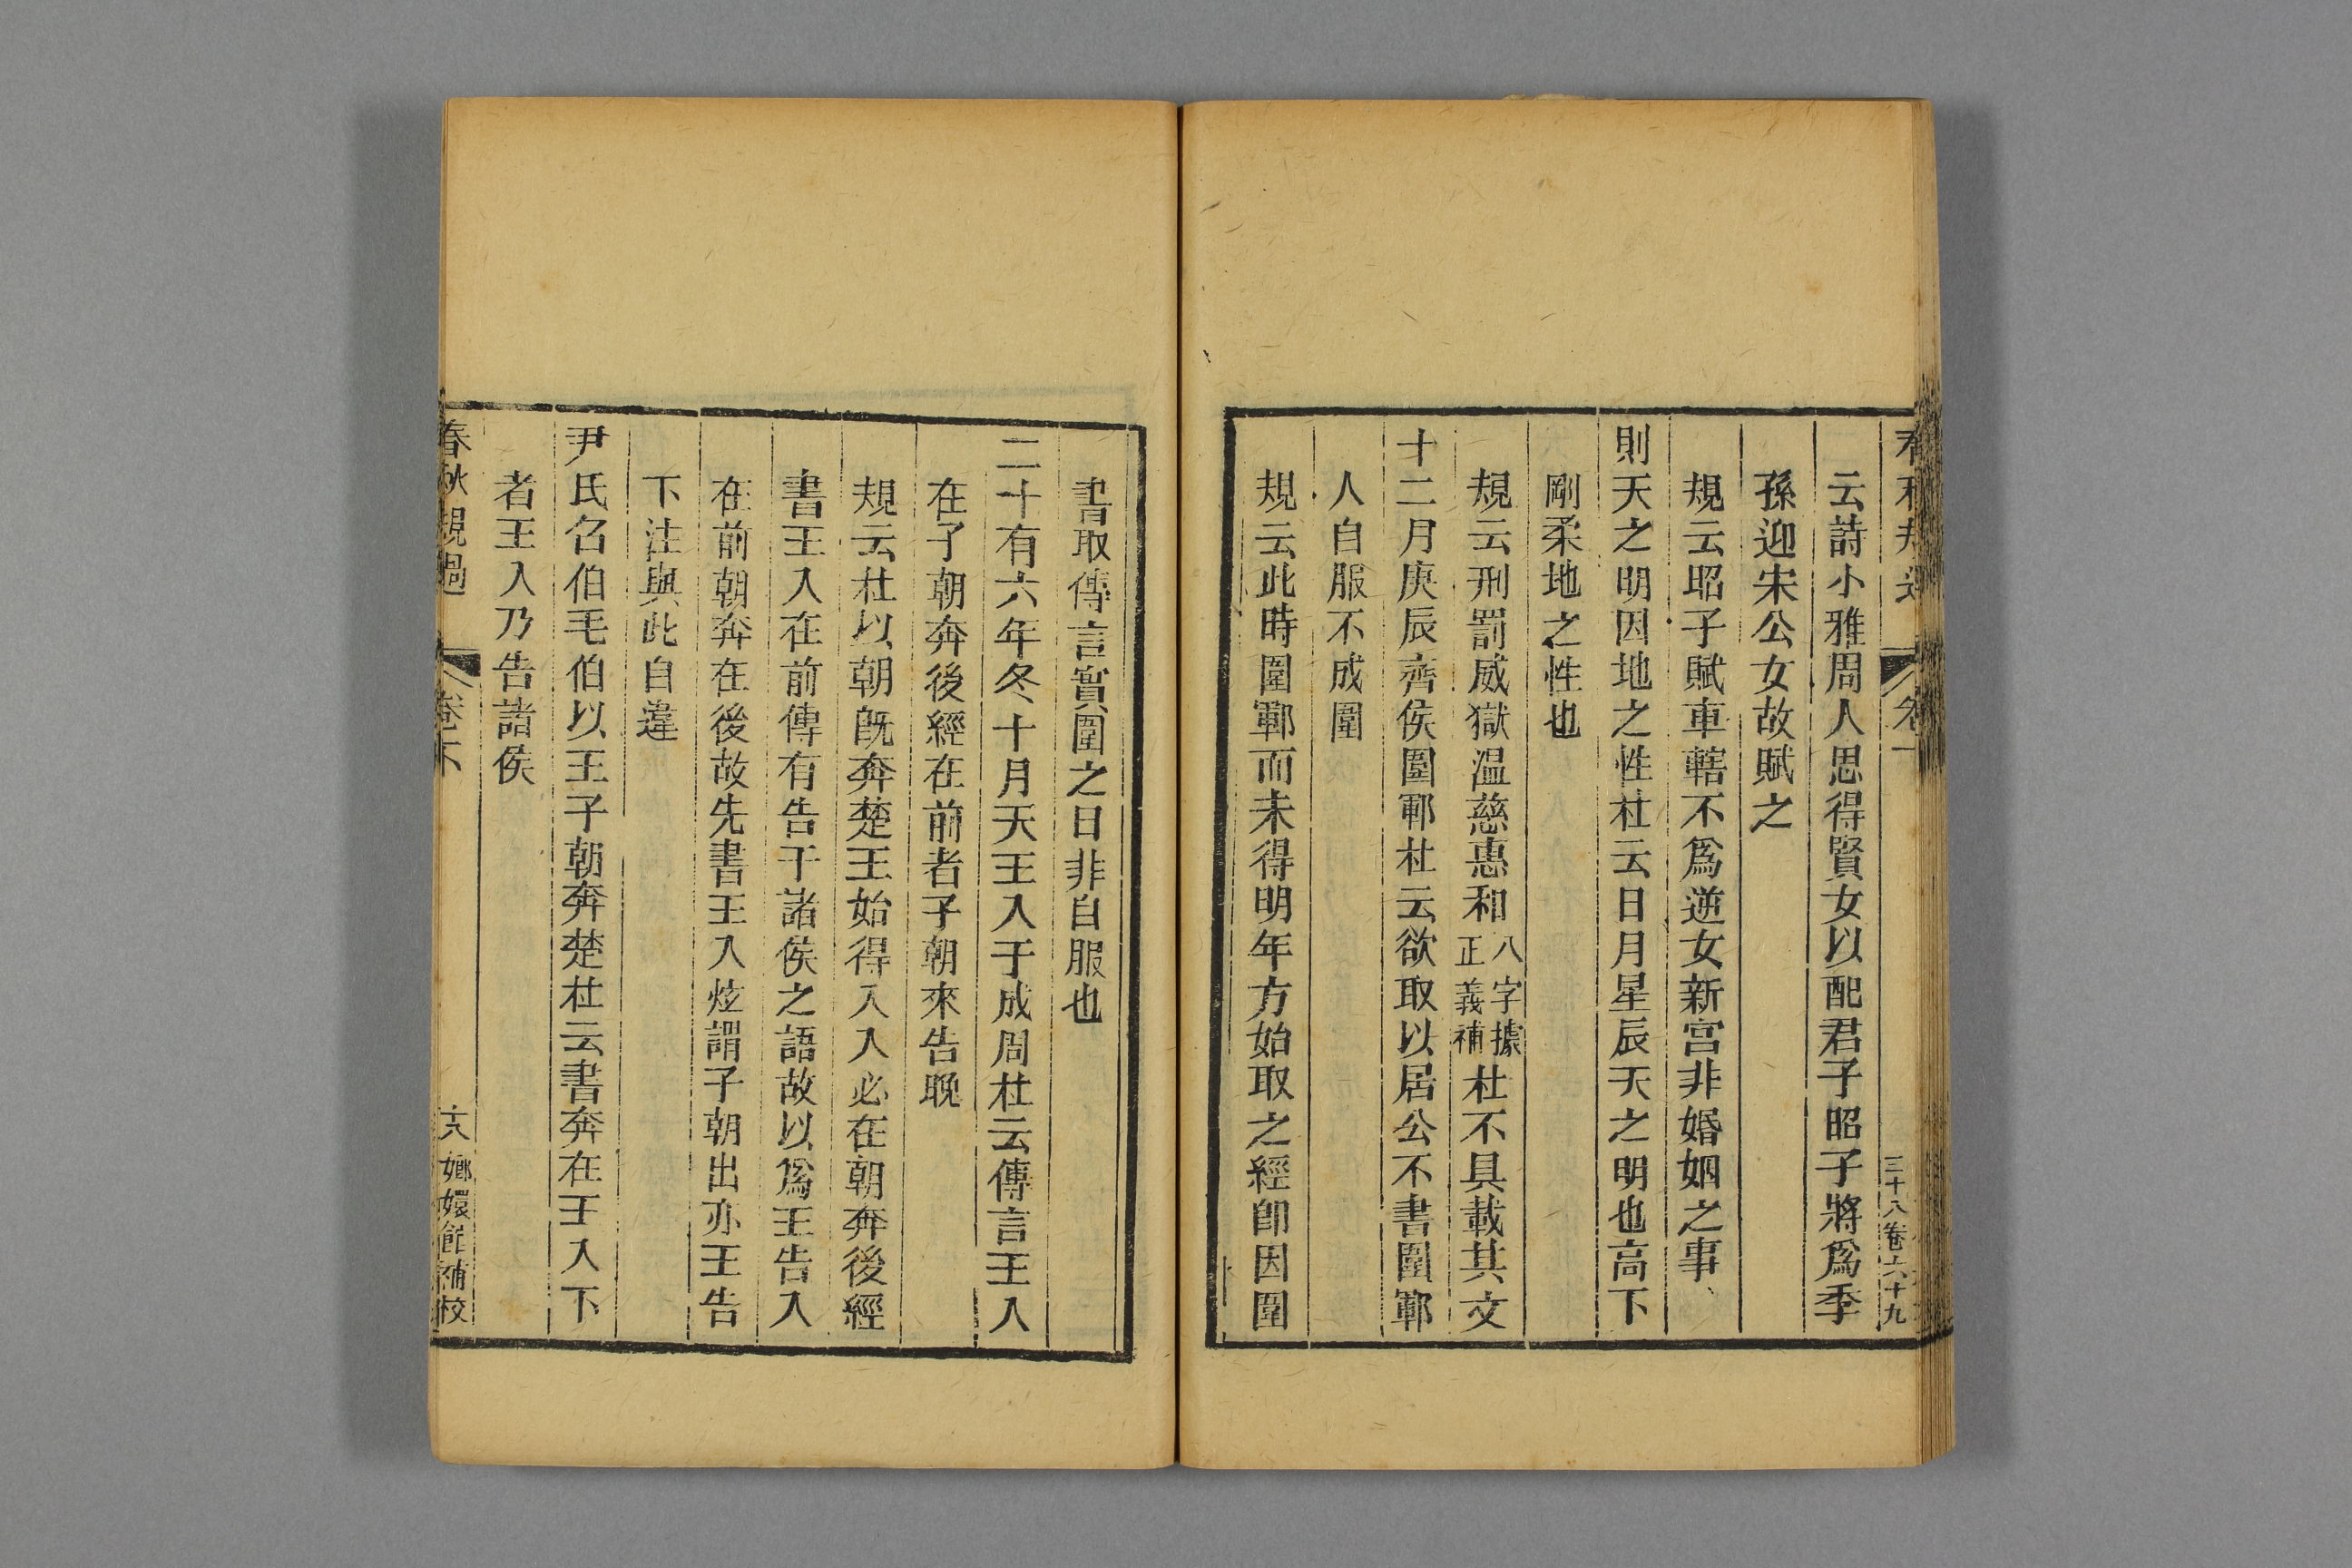 三十八卷六十九
云詩小雅周人思得賢女以配君子昭子將爲季
孫迎宋公女故賦之
規云昭子賦車轄不爲逆女新宮非婚姻之事
則天之明因地之性杜云日月星辰天之明也高下
剛柔地之性也
規云刑罰威獄溫慈惠和八字據正義補杜不具載其文
十二月庚辰齊侯圍鄆杜云欲取以居公不書圍鄆
人自服不成圍
規云此時圍鄆而未得明年方始取之經卽因圍
書取傳言實圍之日非自服也
二十有六年冬十月天王入于成周杜云傳言王入
在子朝奔後經在前者子朝來告晚
規云杜以朝旣奔楚王始得入入必在朝奔後經
書王入在前傳有告于諸侯之語故以爲王告入
在前朝奔在後故先書王入炫謂子朝出亦王告
下注與此自違
尹氏召伯毛伯以王子朝奔楚杜云書奔在王入下
者王入乃告諸侯
春秋規過
卷下
十八
嫏嬛館補校